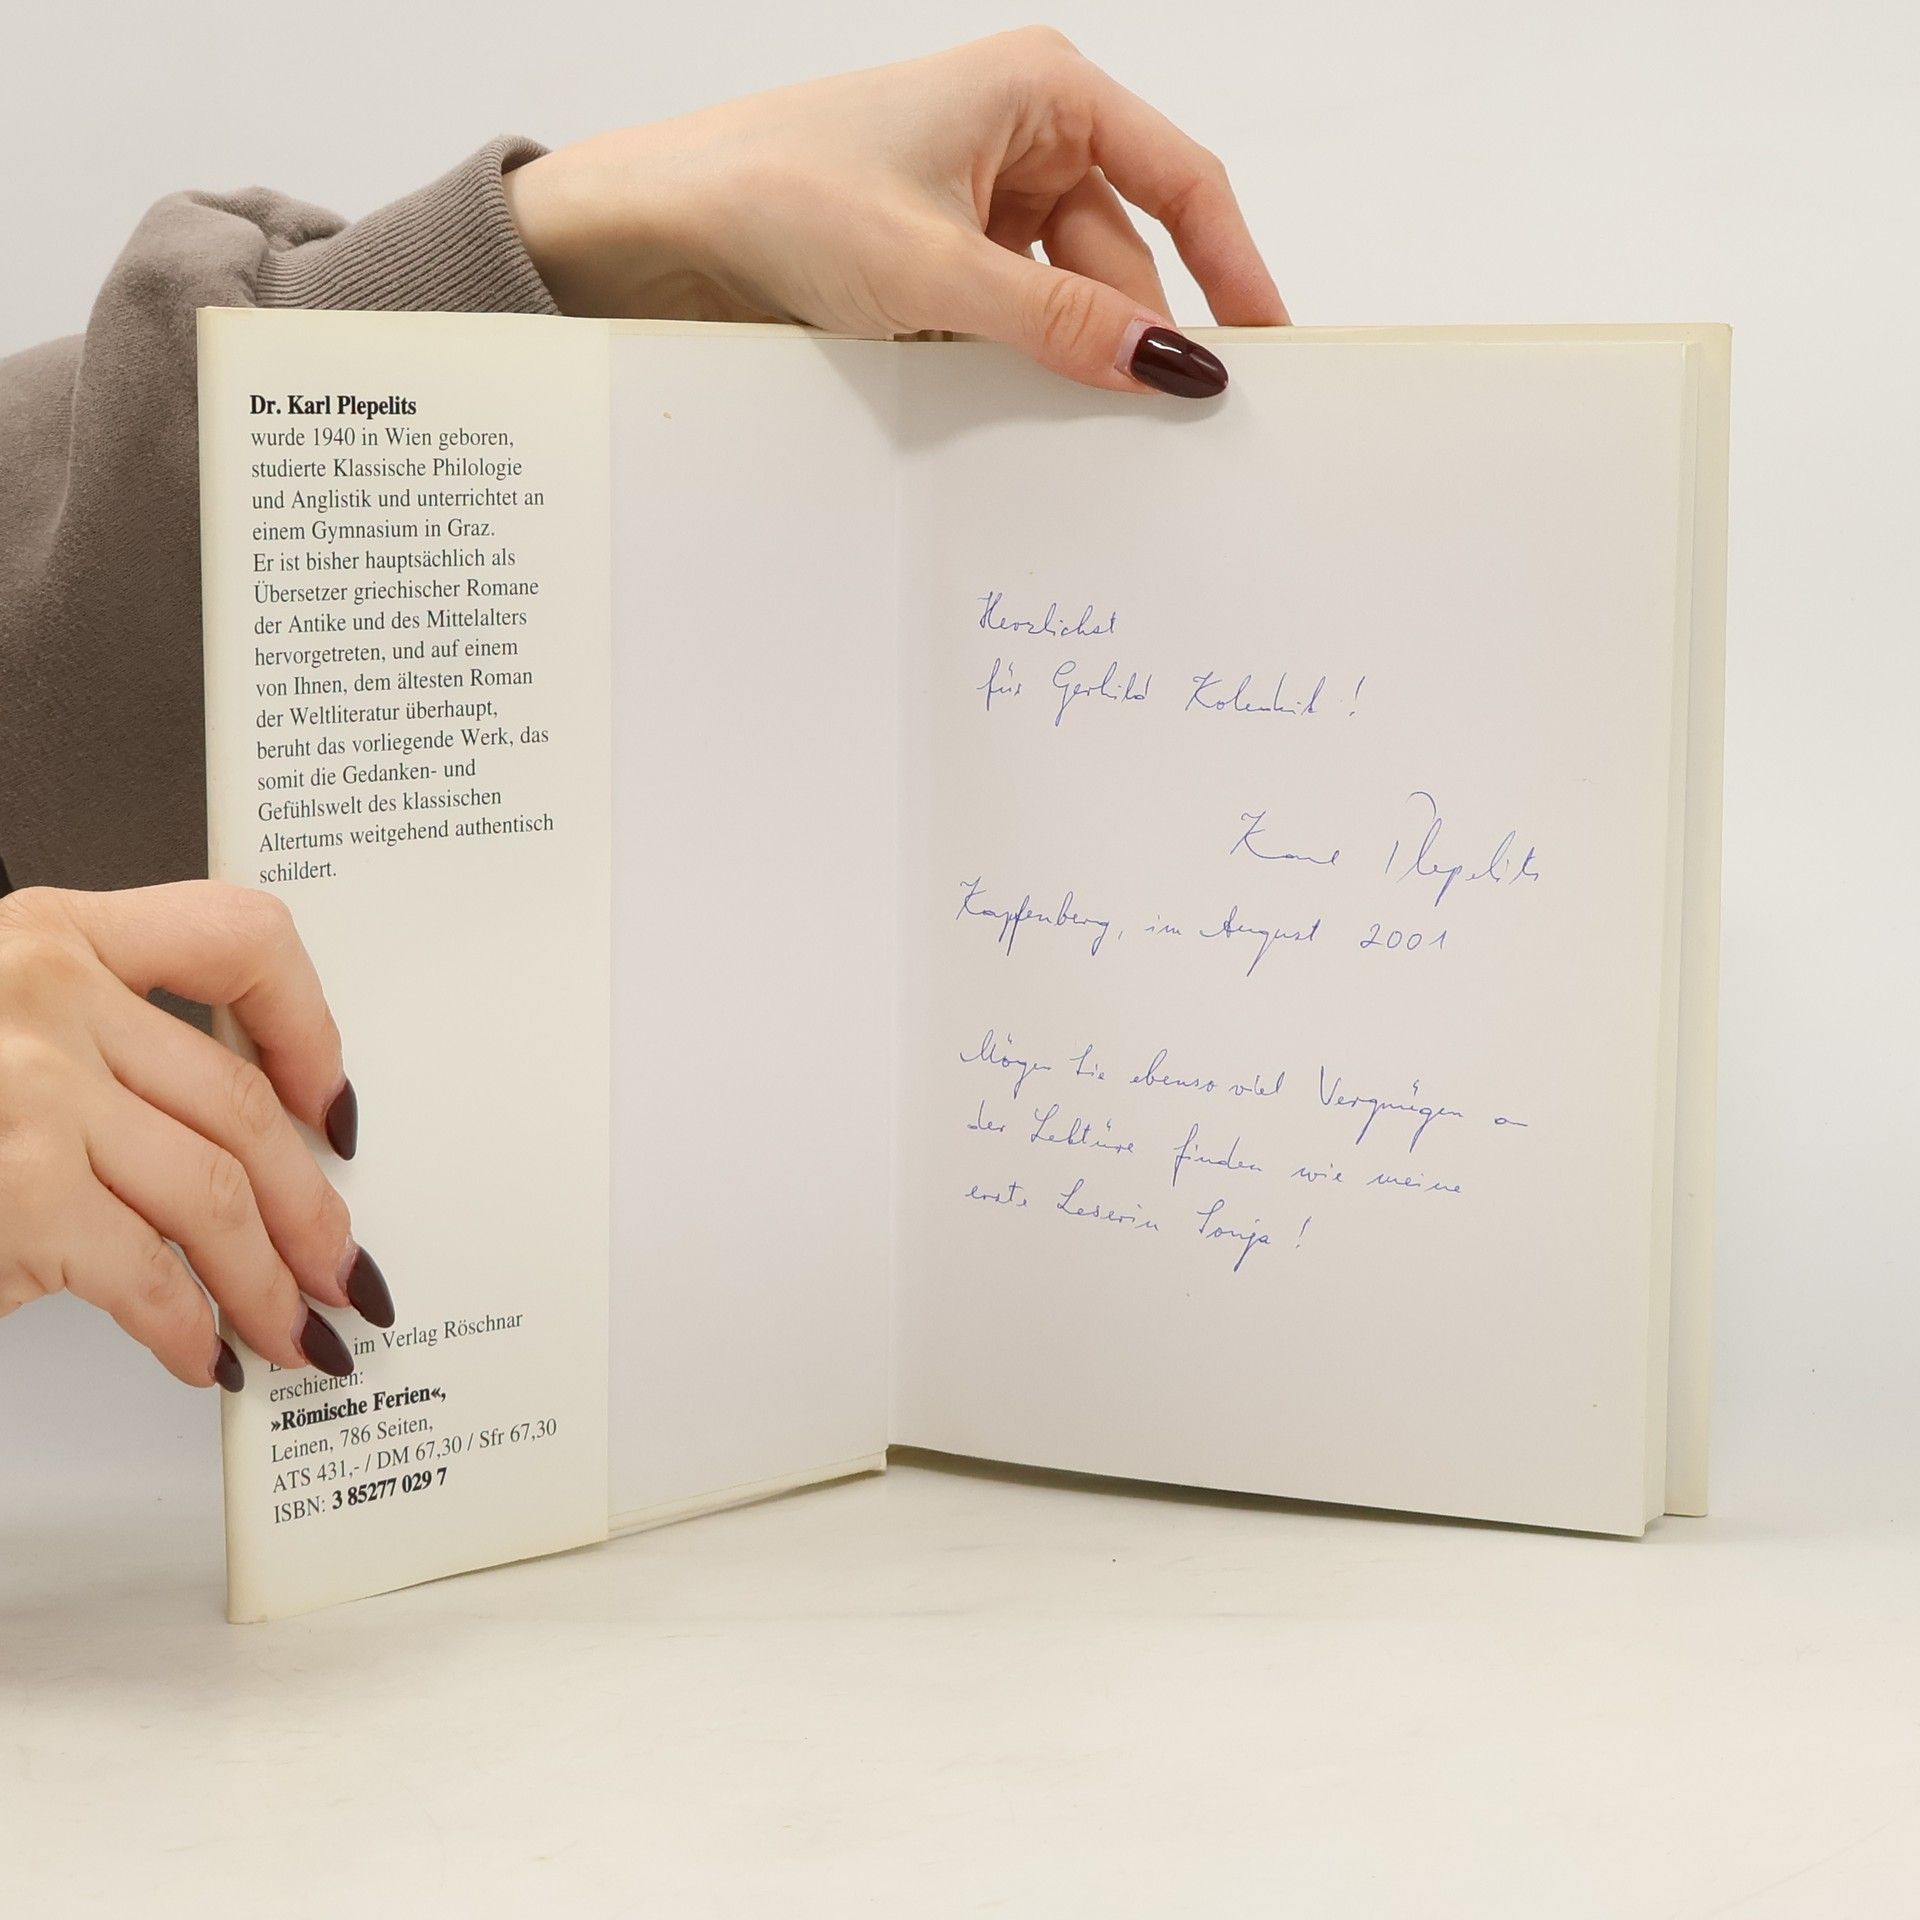 Dr. Karl Plepelits
wurde 1940 in Wien geboren,
studierte Klassische Philologie
und Anglistik und unterrichtet an
einem Gymnasium in Graz.
Er ist bisher hauptsächlich als
Übersetzer griechischer Romane
der Antike und des Mittelalters
hervorgetreten, und auf einem
von Ihnen, dem ältesten Roman
der Weltliteratur überhaupt,
beruht das vorliegende Werk, das
somit die Gedanken- und
Gefühlswelt des klassischen
Altertums weitgehend authentisch
schildert.
im Verlag Röschnar
erschienen:
»Römische Ferien«,
Leinen, 786 Seiten,
ATS 431,- / DM 67,30 / Sfr 67,30
ISBN: 3 85277 029 7
Herzlichst
für Gerhild !
Karl Plepelits
Kapfenberg, im August 2001
Mögen Sie ebenso viel Vergnügen an
der Lektüre finden wie meine
erste Leserin Sonja !